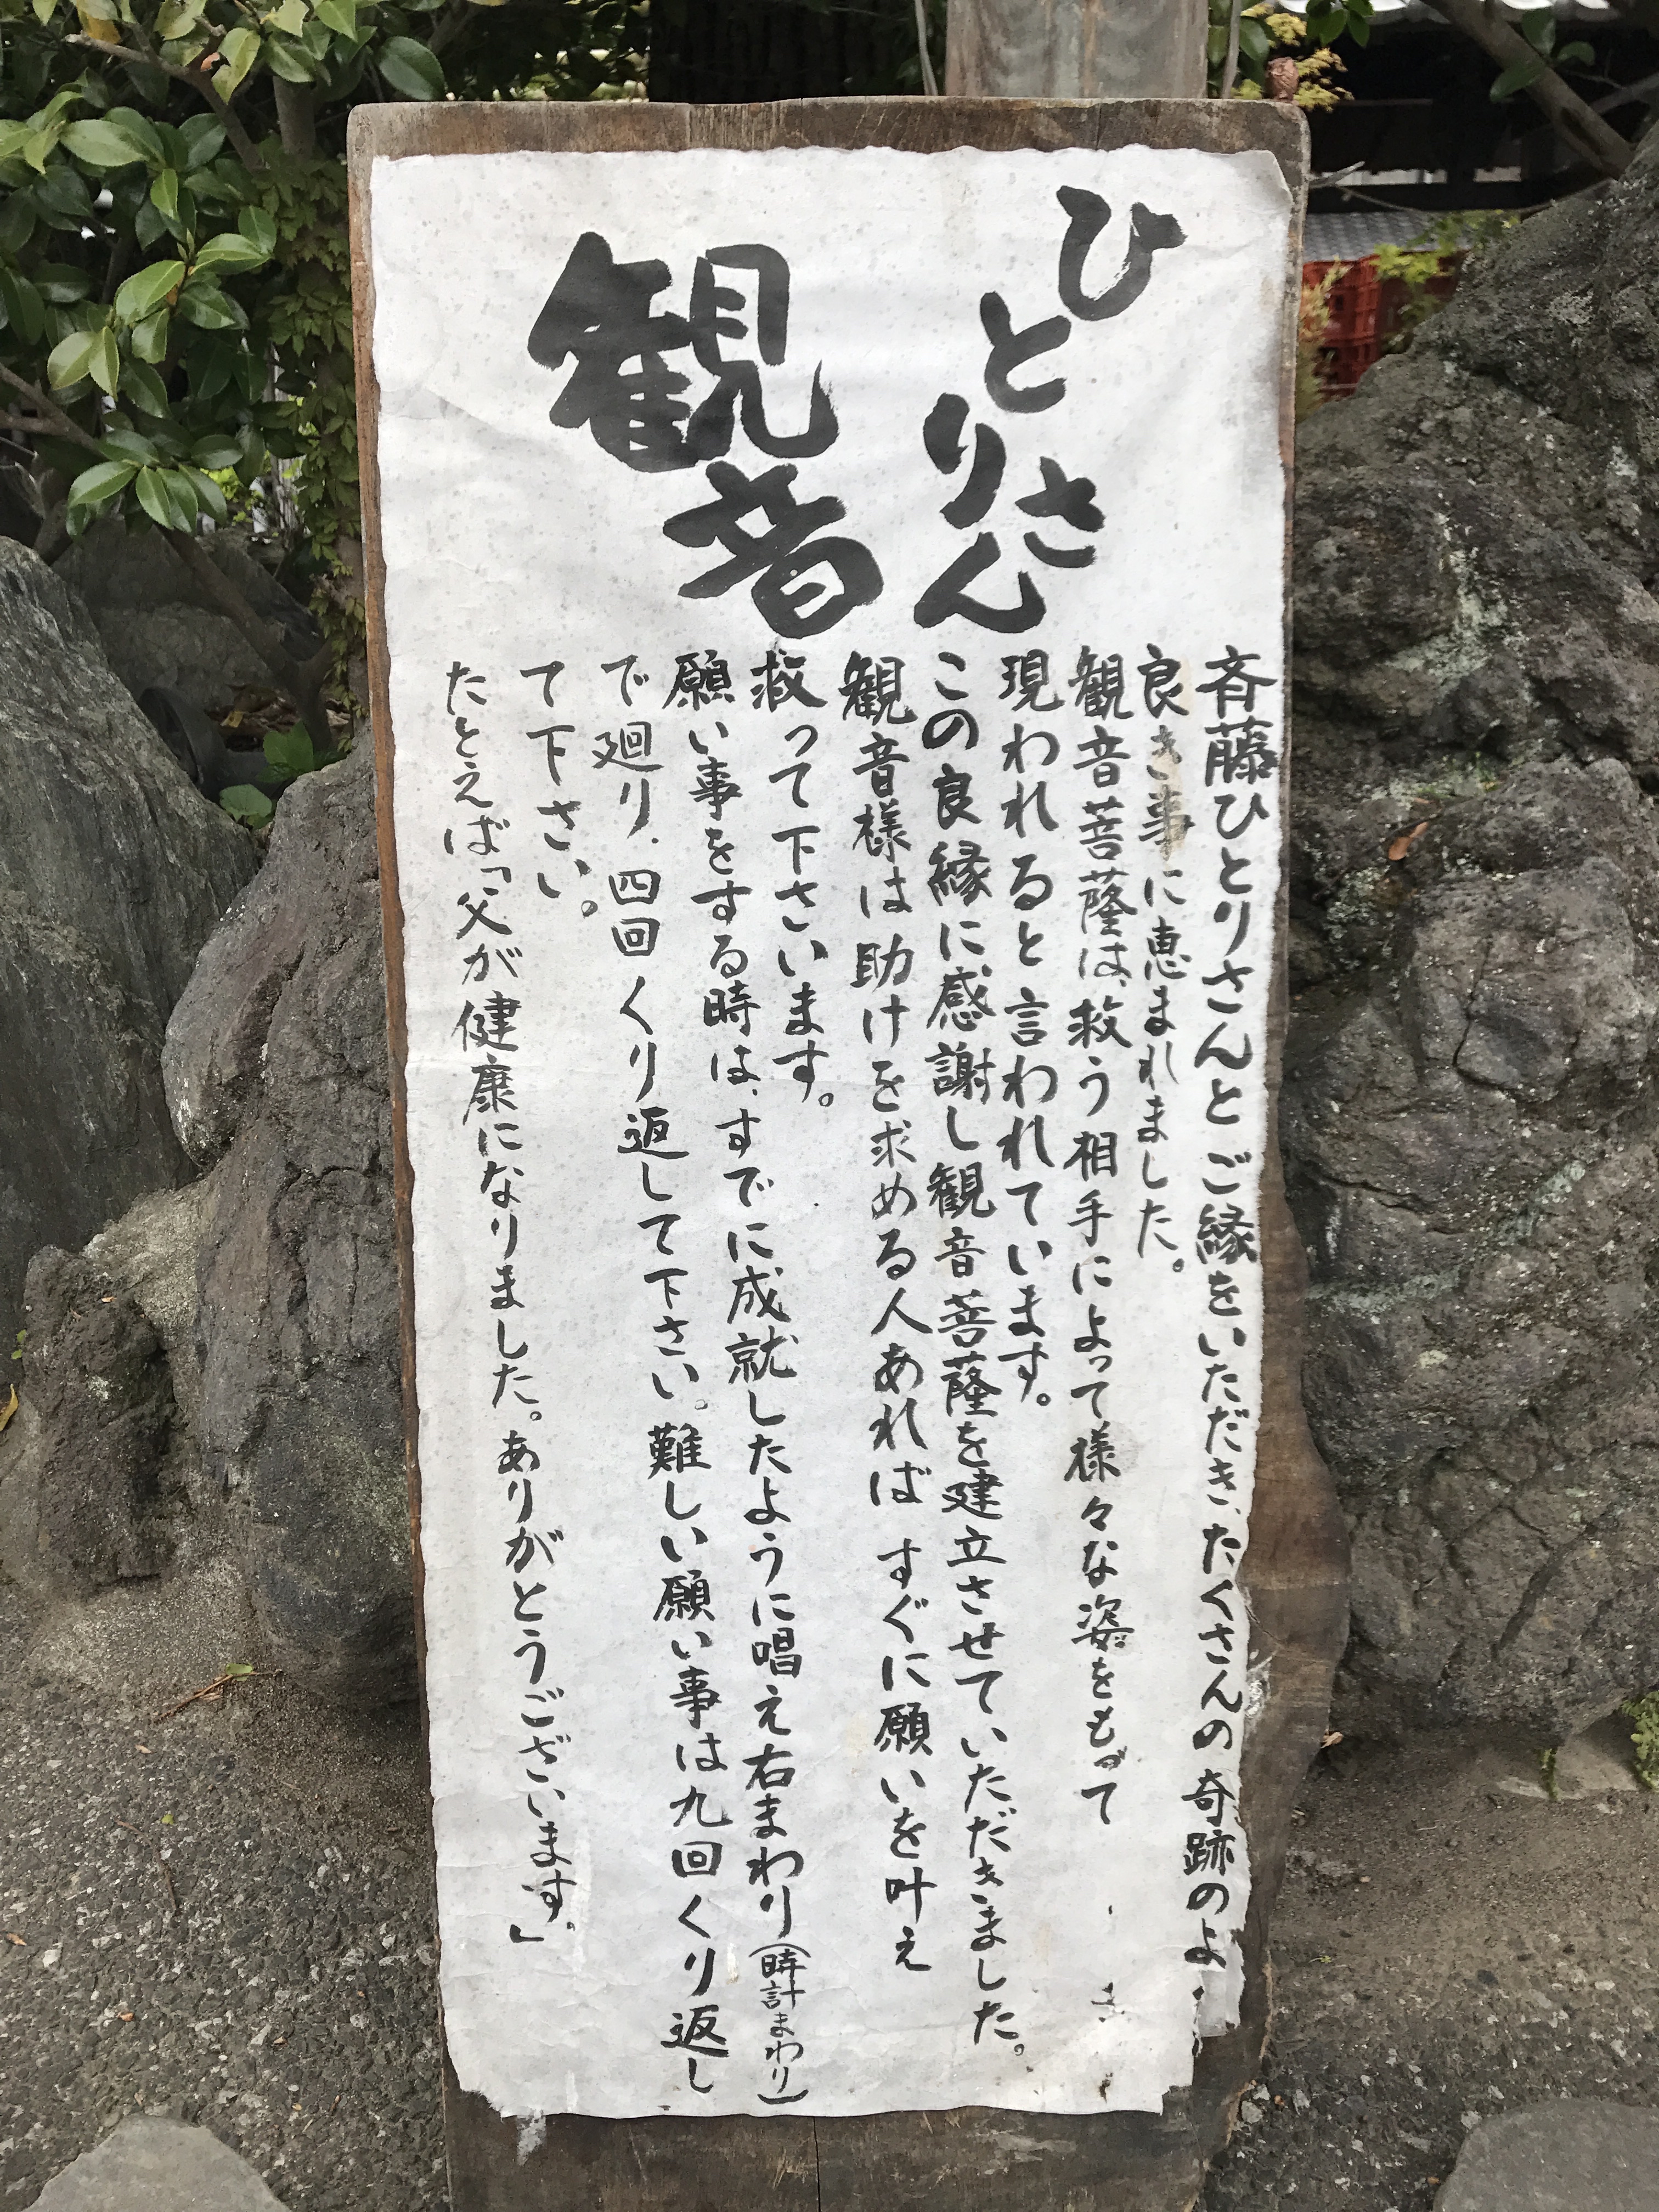 ひとりさん
観音
斉藤ひとりさんとご縁をいただき、たくさんの奇跡のよ
良き事に恵まれました。
観音菩薩は、救う相手によって様々な姿をもって
現われると言われています。
この良縁に感謝し観音菩薩を建立させていただきました。
観音様は助けを求める人あれば すぐに願いを叶え
救って下さいます。
願い事をする時は、すでに成就したように唱え右まわり(時計まわり)
で廻り、四回くり返して下さい。難しい願い事は九回くり返し
て下さい。
たとえば「父が健康になりました。ありがとうございます。」